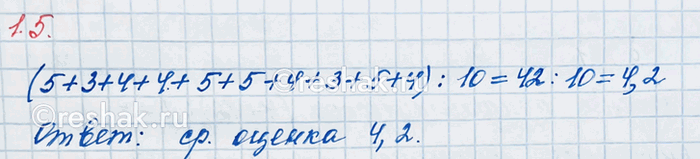 1.5.
(5+3+4+4+5+5+4+3+5+4) : 10 = 42 : 10 = 4,2
Ответ: ср. оценка 4,2.
reshak.ru